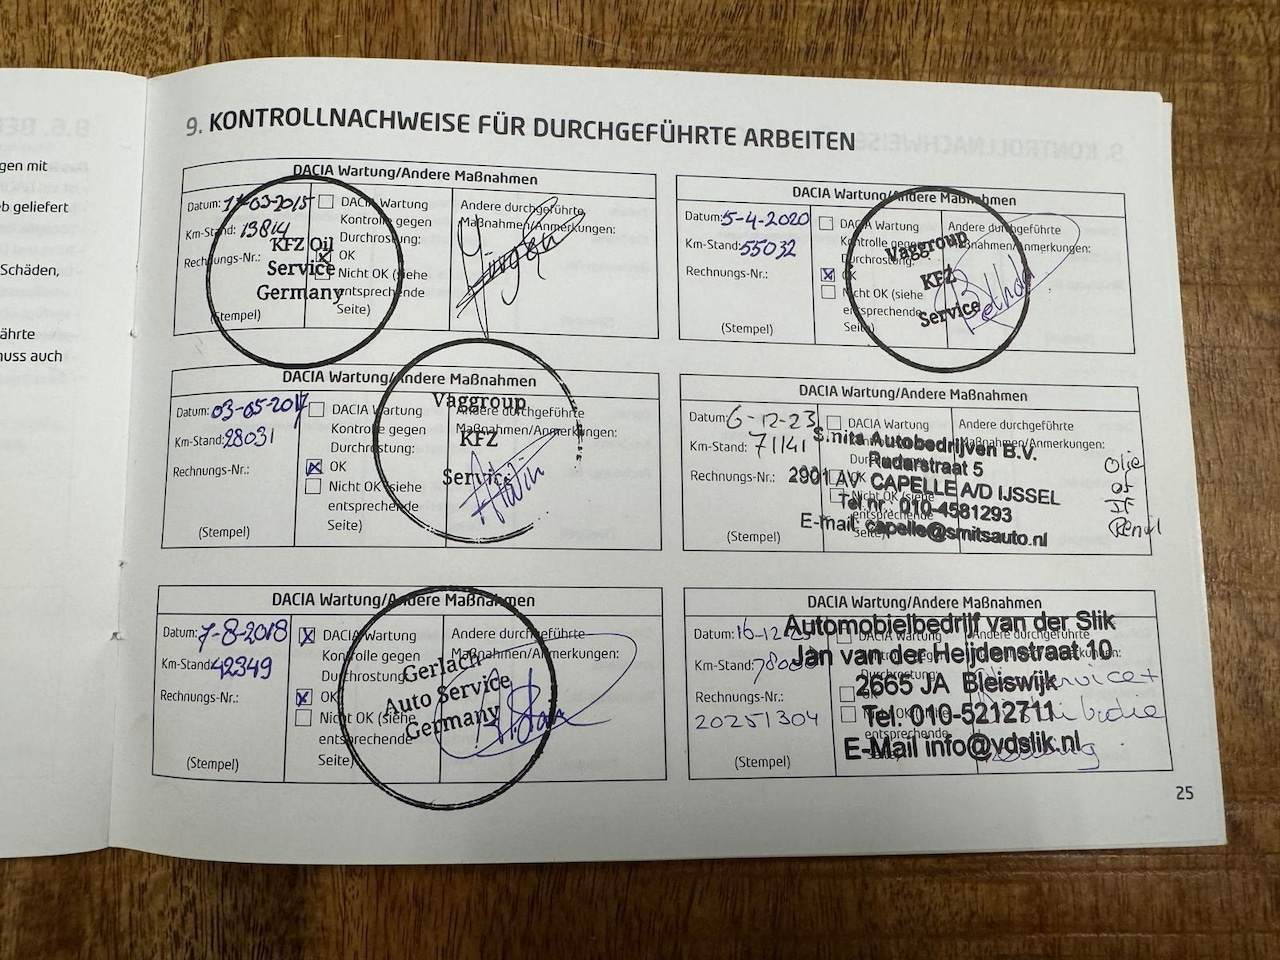 gen mit
b geliefert
Schäden,
ährte
nuss auch
9. KONTROLLNACHWEISE FÜR DURCHGEFÜHRTE ARBEITEN
DACIA Wartung/Andere Maßnahmen
Datum:
Km-Stand: 13814
Rechnungs-Nr.:
(Stempel)
DACIA Wartung
Kontrolle gegen
Durchrostung:
OK
Nicht OK (siehe
entsprechende
Seite)
Andere durchgeführte
Maßnahmen/Anmerkungen:
KFZ Oil
Service
Germany
DACIA Wartung/Andere Maßnahmen
Datum: 03-05-2017
Km-Stand: 28031
Rechnungs-Nr.:
(Stempel)
DACIA Wartung
Kontrolle gegen
Durchrostung:
OK
Nicht OK (siehe
entsprechende
Seite)
Andere durchgeführte
Maßnahmen/Anmerkungen:
Vaggroup
KFZ
Service
DACIA Wartung/Andere Maßnahmen
Datum: 7-8-2018
Km-Stand: 42349
Rechnungs-Nr.:
(Stempel)
DACIA Wartung
Kontrolle gegen
Durchrostung:
OK
Nicht OK (siehe
entsprechende
Seite)
Andere durchgeführte
Maßnahmen/Anmerkungen:
Gerlach
Auto Service
Germany
DACIA Wartung/Andere Maßnahmen
Datum: 5-4-2020
Km-Stand: 55032
Rechnungs-Nr.:
(Stempel)
DACIA Wartung
Kontrolle gegen
Durchrostung:
OK
Nicht OK (siehe
entsprechende
Seite)
Andere durchgeführte
Maßnahmen/Anmerkungen:
Vaggroup
KFZ
Service
DACIA Wartung/Andere Maßnahmen
Datum: 6-12-23
Km-Stand: 71141
Rechnungs-Nr.:
(Stempel)
DACIA Wartung
OK
Nicht OK (siehe
entsprechende
Seite)
Andere durchgeführte
Maßnahmen/Anmerkungen:
Smits Autobedrijven B.V.
Rudarstraat 5
2901 AV CAPELLE A/D IJSSEL
Tel.nr.: 010-4581293
E-mail: capelle@smitsauto.nl
Olie
DACIA Wartung/Andere Maßnahmen
Datum: 16-12
Km-Stand:
Rechnungs-Nr.:
20251304
(Stempel)
DACIA Wartung
OK
entsprechende
Seite)
Andere durchgeführte
Automobielbedrijf van der Slik
Jan van der Heijdenstraat 10
2665 JA Bleiswijk
Tel. 010-5212711
E-Mail info@vdslik.nl
25